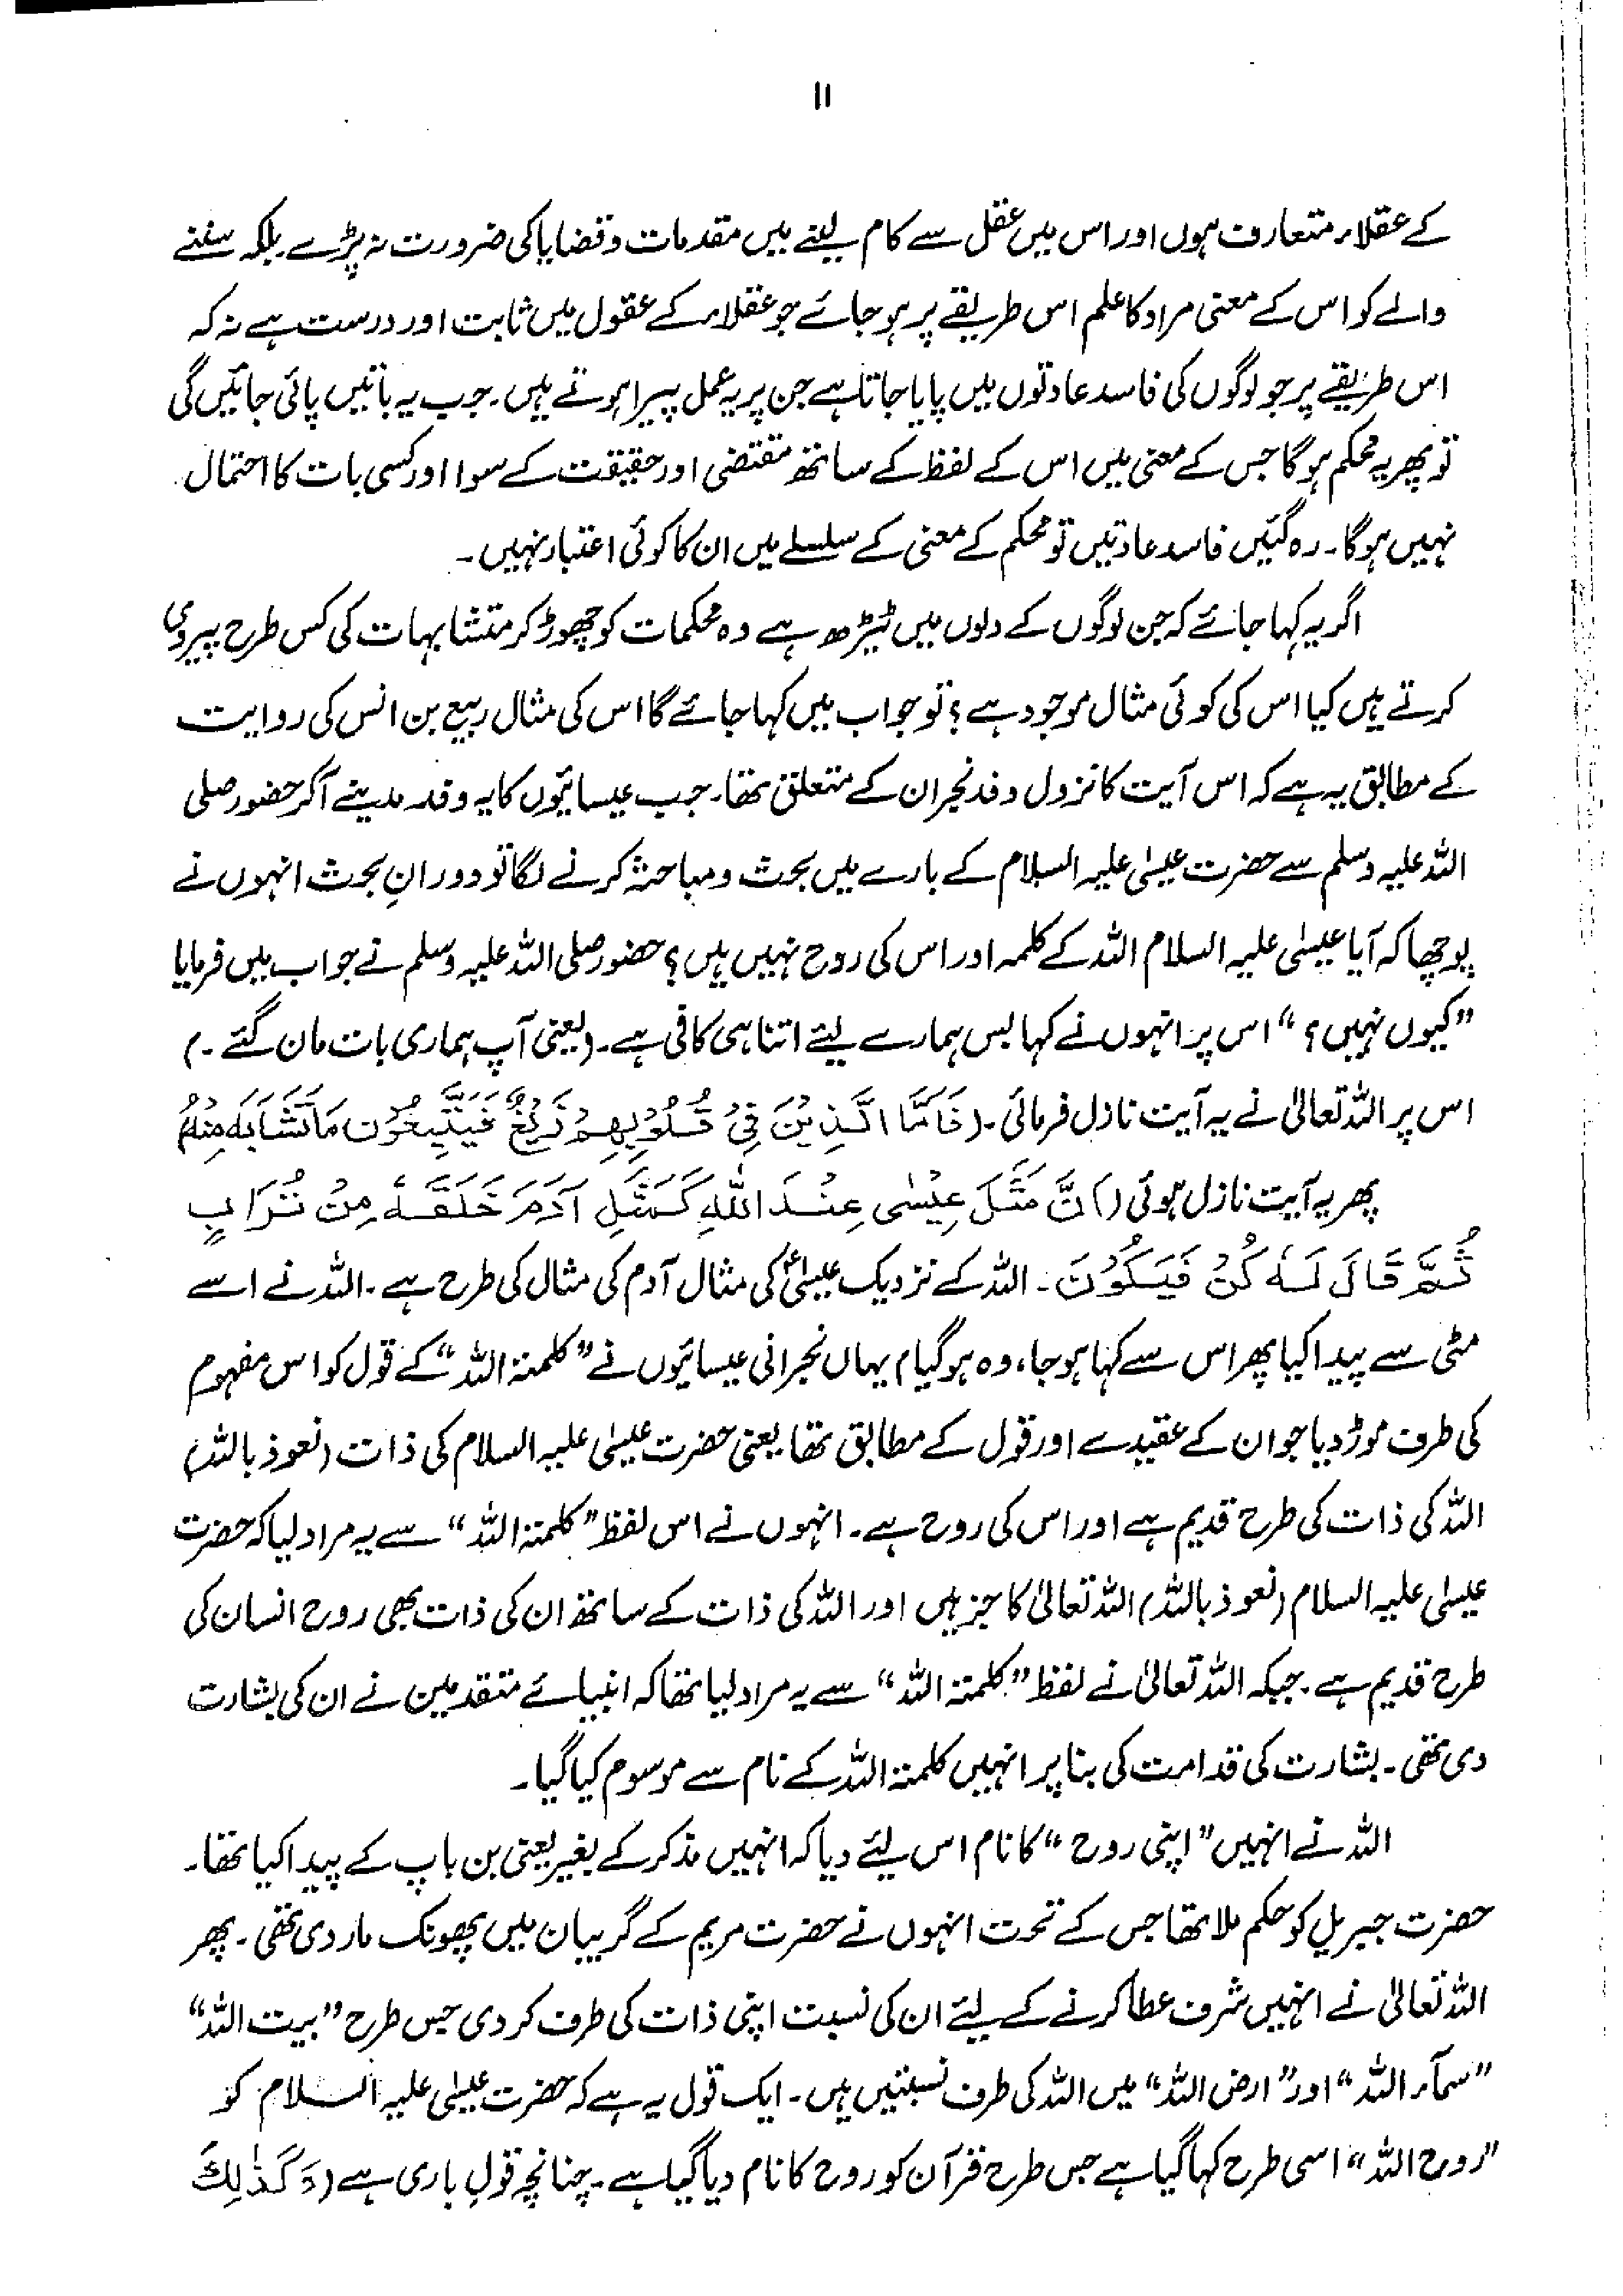 ۱۱
کے عقلاء متعارف ہوں اور اس میں عقل سے کام لینے میں مقدمات و قضایا کی ضرورت نہ پڑے بلکہ سننے
والے کو اس کے معنی مراد کا علم اس طریقے پر ہو جائے جو عقلاء کے عقول میں ثابت اور درست ہے نہ کہ
اس طریقے پر جو لوگوں کی فاسد عادتوں میں پایا جاتا ہے جن پر یہ عمل پیرا ہوتے ہیں۔ جب یہ باتیں پائی جائیں گی
تو پھر یہ محکم ہوگا جس کے معنی میں اس کے لفظ کے ساتھ مقتضی اور حقیقت کے سوا اور کسی بات کا احتمال
نہیں ہوگا۔ رہ گئیں فاسد عادتیں تو محکم کے معنی کے سلسلے میں ان کا کوئی اعتبار نہیں۔
اگر یہ کہا جائے کہ جن لوگوں کے دلوں میں ٹیڑھ ہے وہ محکمات کو چھوڑ کر متشابہات کی کس طرح پیروی
کرتے ہیں کیا اس کی کوئی مثال موجود ہے؟ تو جواب میں کہا جائے گا اس کی مثال ربیع بن انس کی روایت
کے مطابق یہ ہے کہ اس آیت کا نزول وفد نجران کے متعلق تھا۔ جب عیسائیوں کا یہ وفد مدینے آکر حضور صلی
اللہ علیہ وسلم سے حضرت عیسیٰ علیہ السلام کے بارے میں بحث و مباحثہ کرنے لگا تو دورانِ بحث انہوں نے
پوچھا کہ آیا عیسیٰ علیہ السلام اللہ کے کلمہ اور اس کی روح نہیں ہیں؟ حضور صلی اللہ علیہ وسلم نے جواب میں فرمایا
”کیوں نہیں؟“ اس پر انہوں نے کہا بس ہمارے لئے اتنا ہی کافی ہے۔ (یعنی آپ ہماری بات مان گئے۔)
اس پر اللہ تعالیٰ نے یہ آیت نازل فرمائی۔ (فَاَمَّا الَّذِیْنَ فِیْ قُلُوْبِهِمْ زَیْغٌ فَیَتَّبِعُوْنَ مَا تَشَابَهَ مِنْهُ
پھر یہ آیت نازل ہوئی (اِنَّ مَثَلَ عِیْسٰی عِنْدَ اللّٰهِ کَمَثَلِ اٰدَمَ خَلَقَهٗ مِنْ تُرَابٍ
ثُمَّ قَالَ لَهٗ کُنْ فَیَکُوْنَ۔ اللہ کے نزدیک عیسیٰؑ کی مثال آدم کی مثال کی طرح ہے۔ اللہ نے اسے
مٹی سے پیدا کیا پھر اس سے کہا ہو جا، وہ ہو گیا) یہاں نجرانی عیسائیوں نے ”کلمتہ اللہ“ کے قول کو اس مفہوم
کی طرف موڑ دیا جو ان کے عقیدے اور قول کے مطابق تھا یعنی حضرت عیسیٰ علیہ السلام کی ذات (نعوذ باللہ)
اللہ کی ذات کی طرح قدیم ہے اور اس کی روح ہے۔ انہوں نے اس لفظ ”کلمتہ اللہ“ سے یہ مراد لیا کہ حضرت
عیسیٰ علیہ السلام (نعوذ باللہ) اللہ تعالیٰ کا جز ہیں اور اللہ کی ذات کے ساتھ ان کی ذات بھی روح انسان کی
طرح قدیم ہے۔ جبکہ اللہ تعالیٰ نے لفظ ”کلمتہ اللہ“ سے یہ مراد لیا تھا کہ انبیائے متقدمین نے ان کی بشارت
دی تھی۔ بشارت کی قدامت کی بنا پر انہیں کلمتہ اللہ کے نام سے موسوم کیا گیا۔
اللہ نے انہیں ”اپنی روح“ کا نام اس لئے دیا کہ انہیں مذکر کے بغیر یعنی بن باپ کے پیدا کیا تھا۔
حضرت جبریل کو حکم ملا تھا جس کے تحت انہوں نے حضرت مریم کے گریبان میں پھونک مار دی تھی۔ پھر
اللہ تعالیٰ نے انہیں شرف عطا کرنے کے لئے ان کی نسبت اپنی ذات کی طرف کر دی جس طرح ”بیت اللہ“
”سمآء اللہ“ اور ”ارض اللہ“ میں اللہ کی طرف نسبتیں ہیں۔ ایک قول یہ ہے کہ حضرت عیسیٰ علیہ السلام کو
”روح اللہ“ اسی طرح کہا گیا ہے جس طرح قرآن کو روح کا نام دیا گیا ہے۔ چنانچہ قولِ باری ہے (وَکَذٰلِکَ